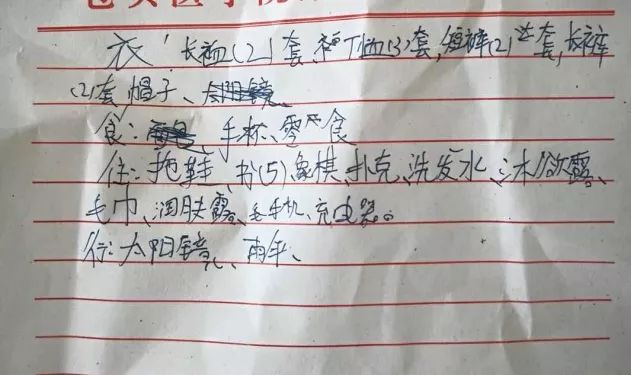 衣：长袖(2)套、T恤(3)套，短裤(2)套，长裤
(2)套，帽子、太阳镜
食：雨伞、手杯、零食
住：拖鞋、书(5)象棋、扑克、洗发水、沐浴露、
毛巾、润肤露、手机、充电器。
行：太阳镜、雨伞、